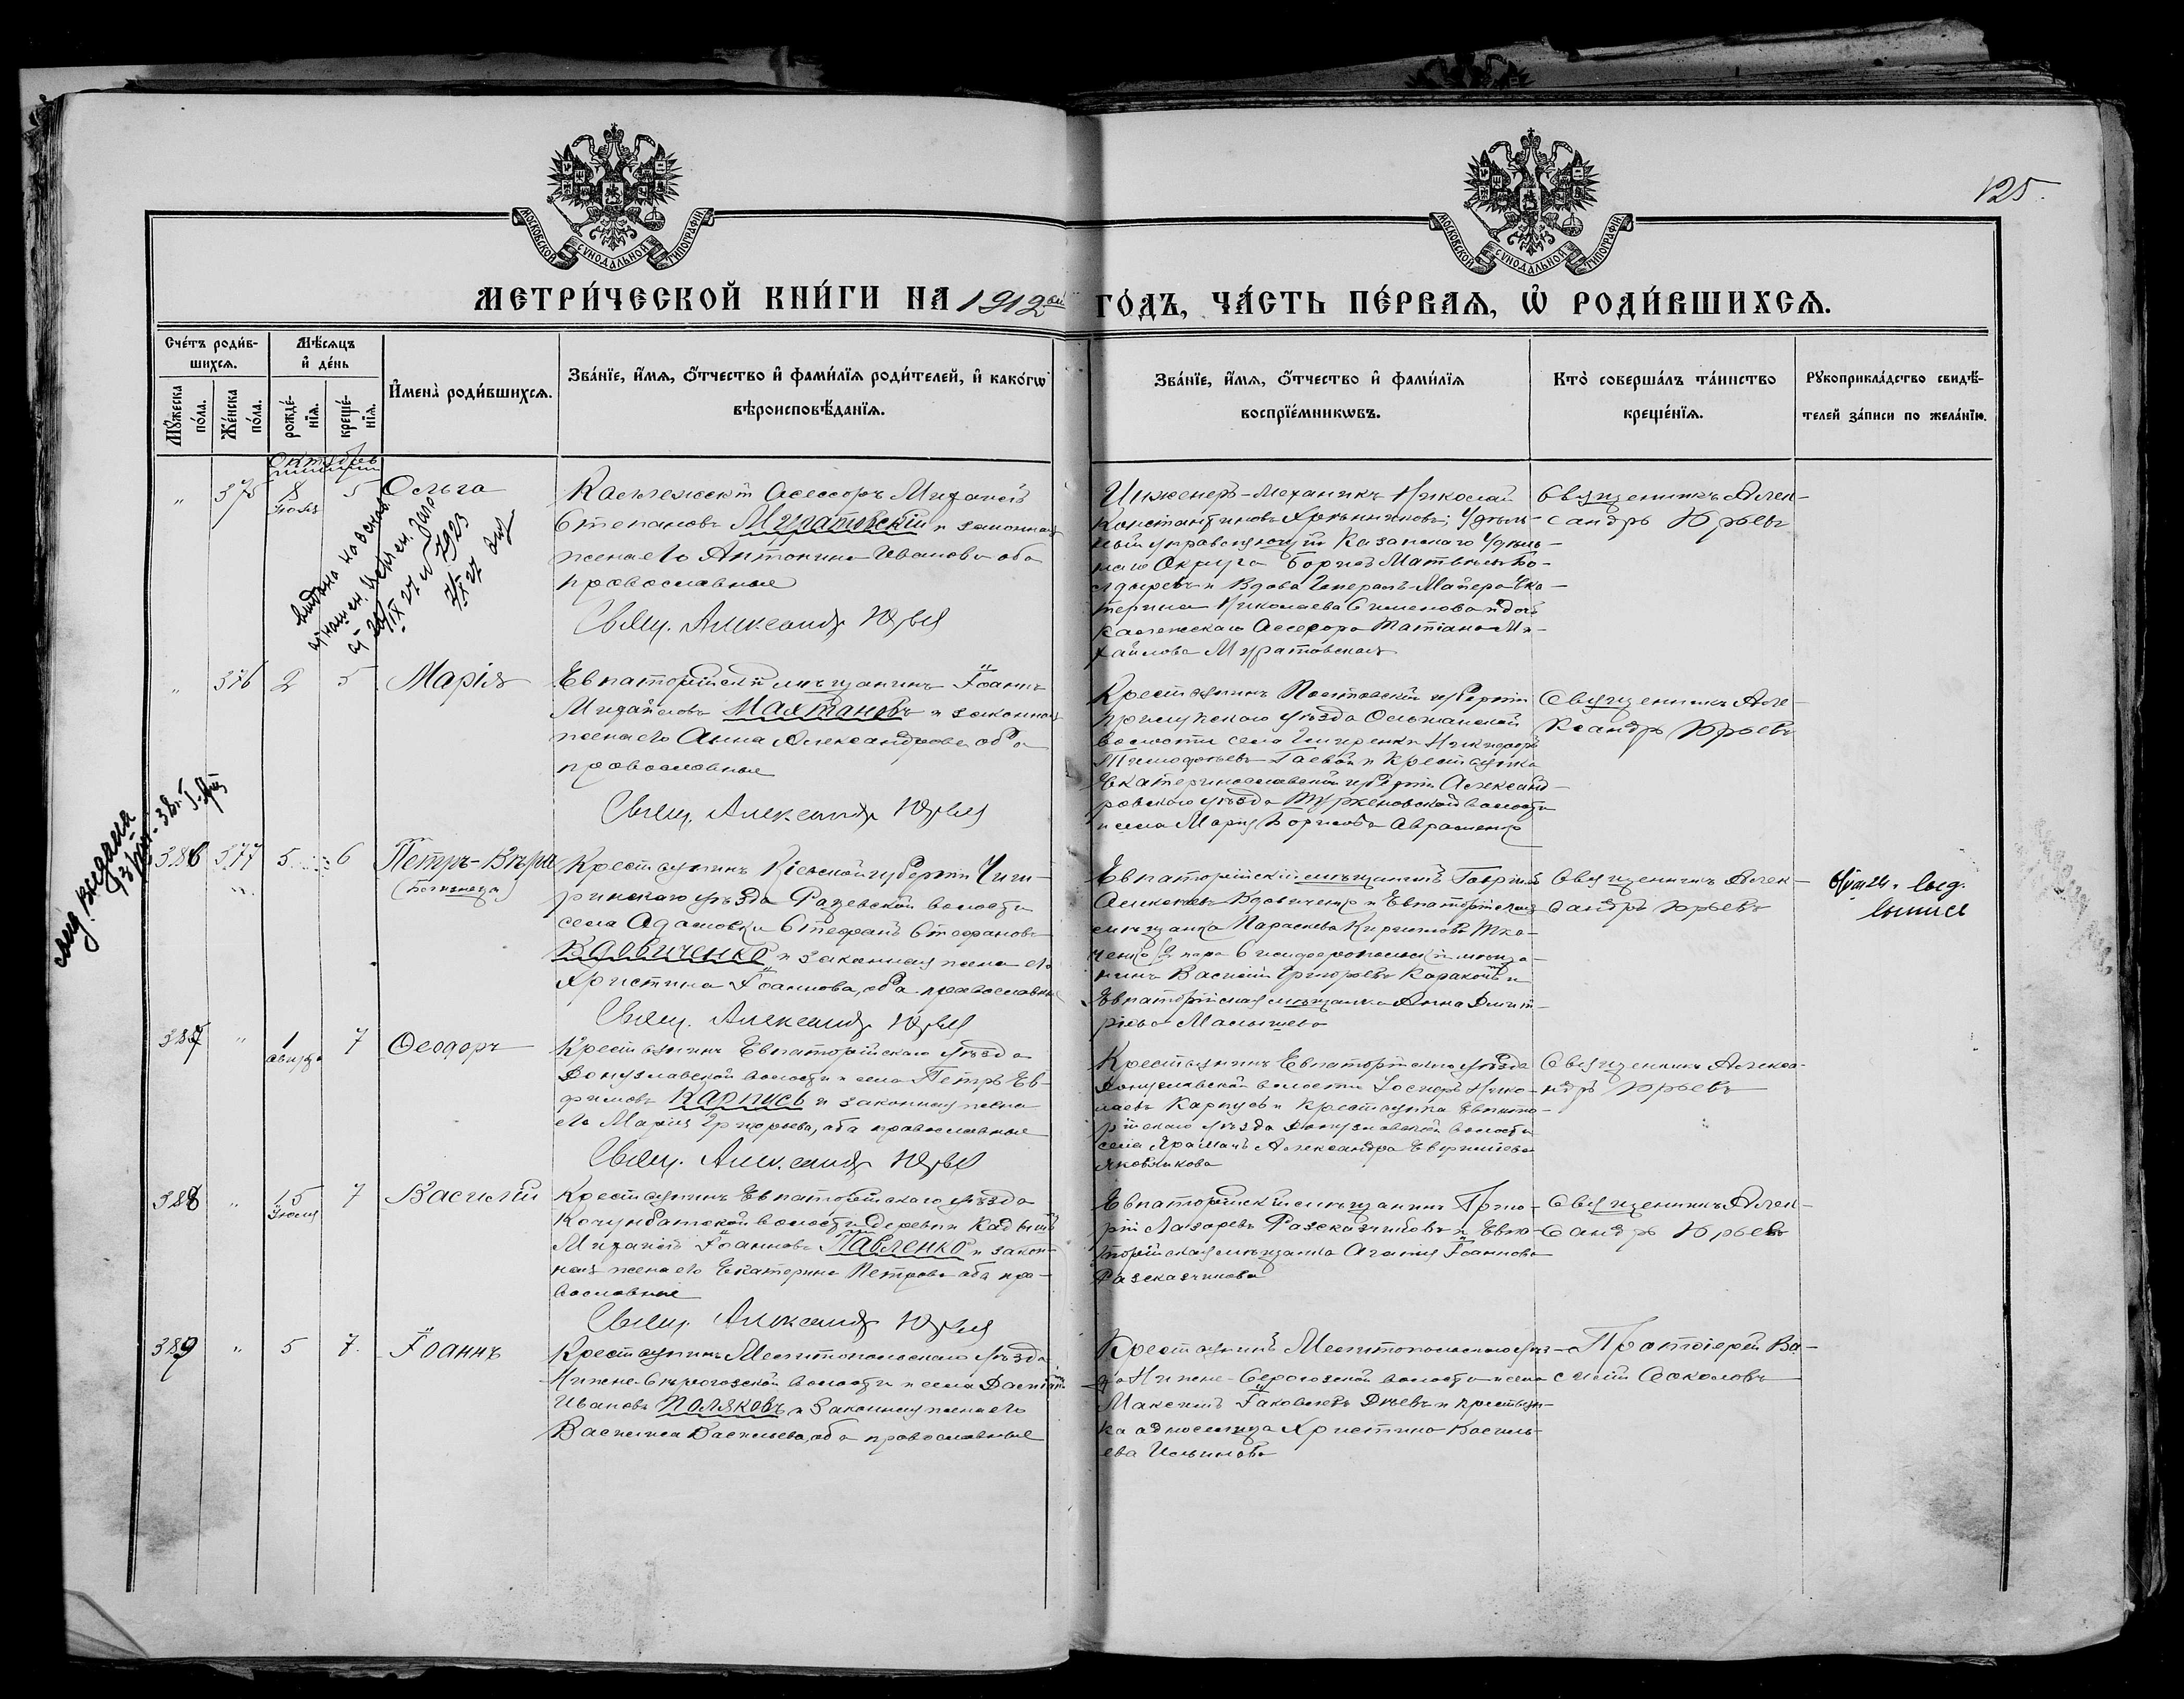 125.
МОСКОВСКОЙ СѴНОДАЛЬНОЙ ТИПОГРАФІИ
МОСКОВСКОЙ СѴНОДАЛЬНОЙ ТИПОГРАФІИ
МЕТРИ́ЧЕСКОЙ КНИ́ГИ НА 1912ый ГО́ДЪ, ЧА́СТЬ ПЕ́РВАЯ, Ѡ РОДИ́ВШИХСЯ.
Сче́тъ роди́в-
шихся.
Мꙋ́жеска по́ла.
Же́нска по́ла.
Мѣ́сяцъ и҆ де́нь
рожде́-нїя.
креще́-нїя.
И҆мена̀ роди́вшихся.
Зва́нїе, и҆́мя, ѻ҆́тчество и҆ фами́лїя роди́телей, и҆ како́гѡ
вѣроисповѣ́данїя.
Зва́нїе, и҆́мя, ѻ҆́тчество и҆ фами́лїя
воспрїе́мникѡвъ.
Кто̀ соверша́лъ та́инство
креще́нїя.
Рꙋкоприкла́дство свидѣ́-
телей за́писи по жела́нїю.
Октябрь
" 375 18 Іюля 5 Ольга
Коллежскій Асессоръ Михаилъ
Степановъ Муратовскій и законная
жена его Антонина Иванова оба
православные
Свящ. Александръ Юрьевъ
Инженеръ-Механикъ Николай
Константиновъ
управляющій Казанскаго Удѣль-
наго Округа Борисъ Матвѣевъ Бо-
лдыревъ и Вдова Генералъ-Майора Ека-
терина Николаева Сименова и дочь
Коллежскаго Асессора Татіана Ми-
хайлова Муратовская
Священникъ Алек-
сандръ Юрьевъ
IX 27 № 7923
" 376 2 5 Марія
Евпаторійскій мѣщанинъ Іоаннъ
Михайловъ Махтановъ и законная
жена его Анна Александрова оба
православные
Свящ. Александръ Юрьевъ
Крестьянинъ Полтавской губерніи
Прилукскаго уѣзда Ольшанской
волости села
Тимофеевъ Гаевой и Крестьянка
Екатеринославской губерніи Александ-
ровскаго уѣзда Туркеновской волости
и села Марія Борисова Авраменко
Священникъ Але-
ксандръ Юрьевъ
386 377 5 6 Петръ-Вѣра
(близнецы)
Крестьянинъ Кіевской губерніи Чиги-
ринскаго уѣзда Рацевской волости
села Адамовки Стефанъ Стефановъ
Вдовиченко и законная жена его
Христина Іоаннова, оба православные
Свящ. Александръ Юрьевъ
Евпаторійскій мѣщанинъ Гавріилъ
Алексѣевъ Вдовиченко и Евпаторійская
мѣщанка Параскева Кириллова Тка-
ченко (2 пара Симферопольскій мѣща-
нинъ Василій Григорьевъ и
Евпаторійская мѣщанка Анна Дмит-
ріева Малышева
Священникъ Алек-
сандръ Юрьевъ
выд.
выпись
387 " 1 августа 7 Ѳеодоръ
Крестьянинъ Евпаторійскаго уѣзда
Донузлавской волости и села Петръ Ев-
фимовъ Карпусь и законная жена
его Марія Григорьева, оба православные
Свящ. Александръ Юрьевъ
Крестьянинъ Евпаторійскаго уѣзда
Донузлавской волости Іосифъ Нико-
лаевъ Карпусь и крестьянка Евпато-
рійскаго уѣзда Донузлавской волости
села Александра
Яковликова
Священникъ Алекса-
ндръ Юрьевъ
388 " 15 Іюля 7 Василій
Крестьянинъ Евпаторійскаго уѣзда
волости деревни
Михаилъ Іоанновъ Павленко и закон-
ная жена его Екатерина Петрова оба пра-
вославные
Свящ. Александръ Юрьевъ
Евпаторійскій мѣщанинъ Григо-
рій Лазаревъ Разсказчиковъ и Евпа-
торійская мѣщанка Агафія Іоаннова
Разсказчикова
Священникъ Алек-
сандръ Юрьевъ
389 " 5 7 Іоаннъ
Крестьянинъ Мелитопольскаго уѣзда
Нижне-Сѣрогозской волости и села
Ивановъ Поляковъ и законная жена его
Василиса Васильева, оба православные
Крестьянинъ Мелитопольскаго уѣз-
да Нижне-Серогозской волости и села
Максимъ Іаковлевъ и крестьян-
ка односелица Христина Василь-
ева Ильинова
Протоіерей Ва-
силій Соколовъ